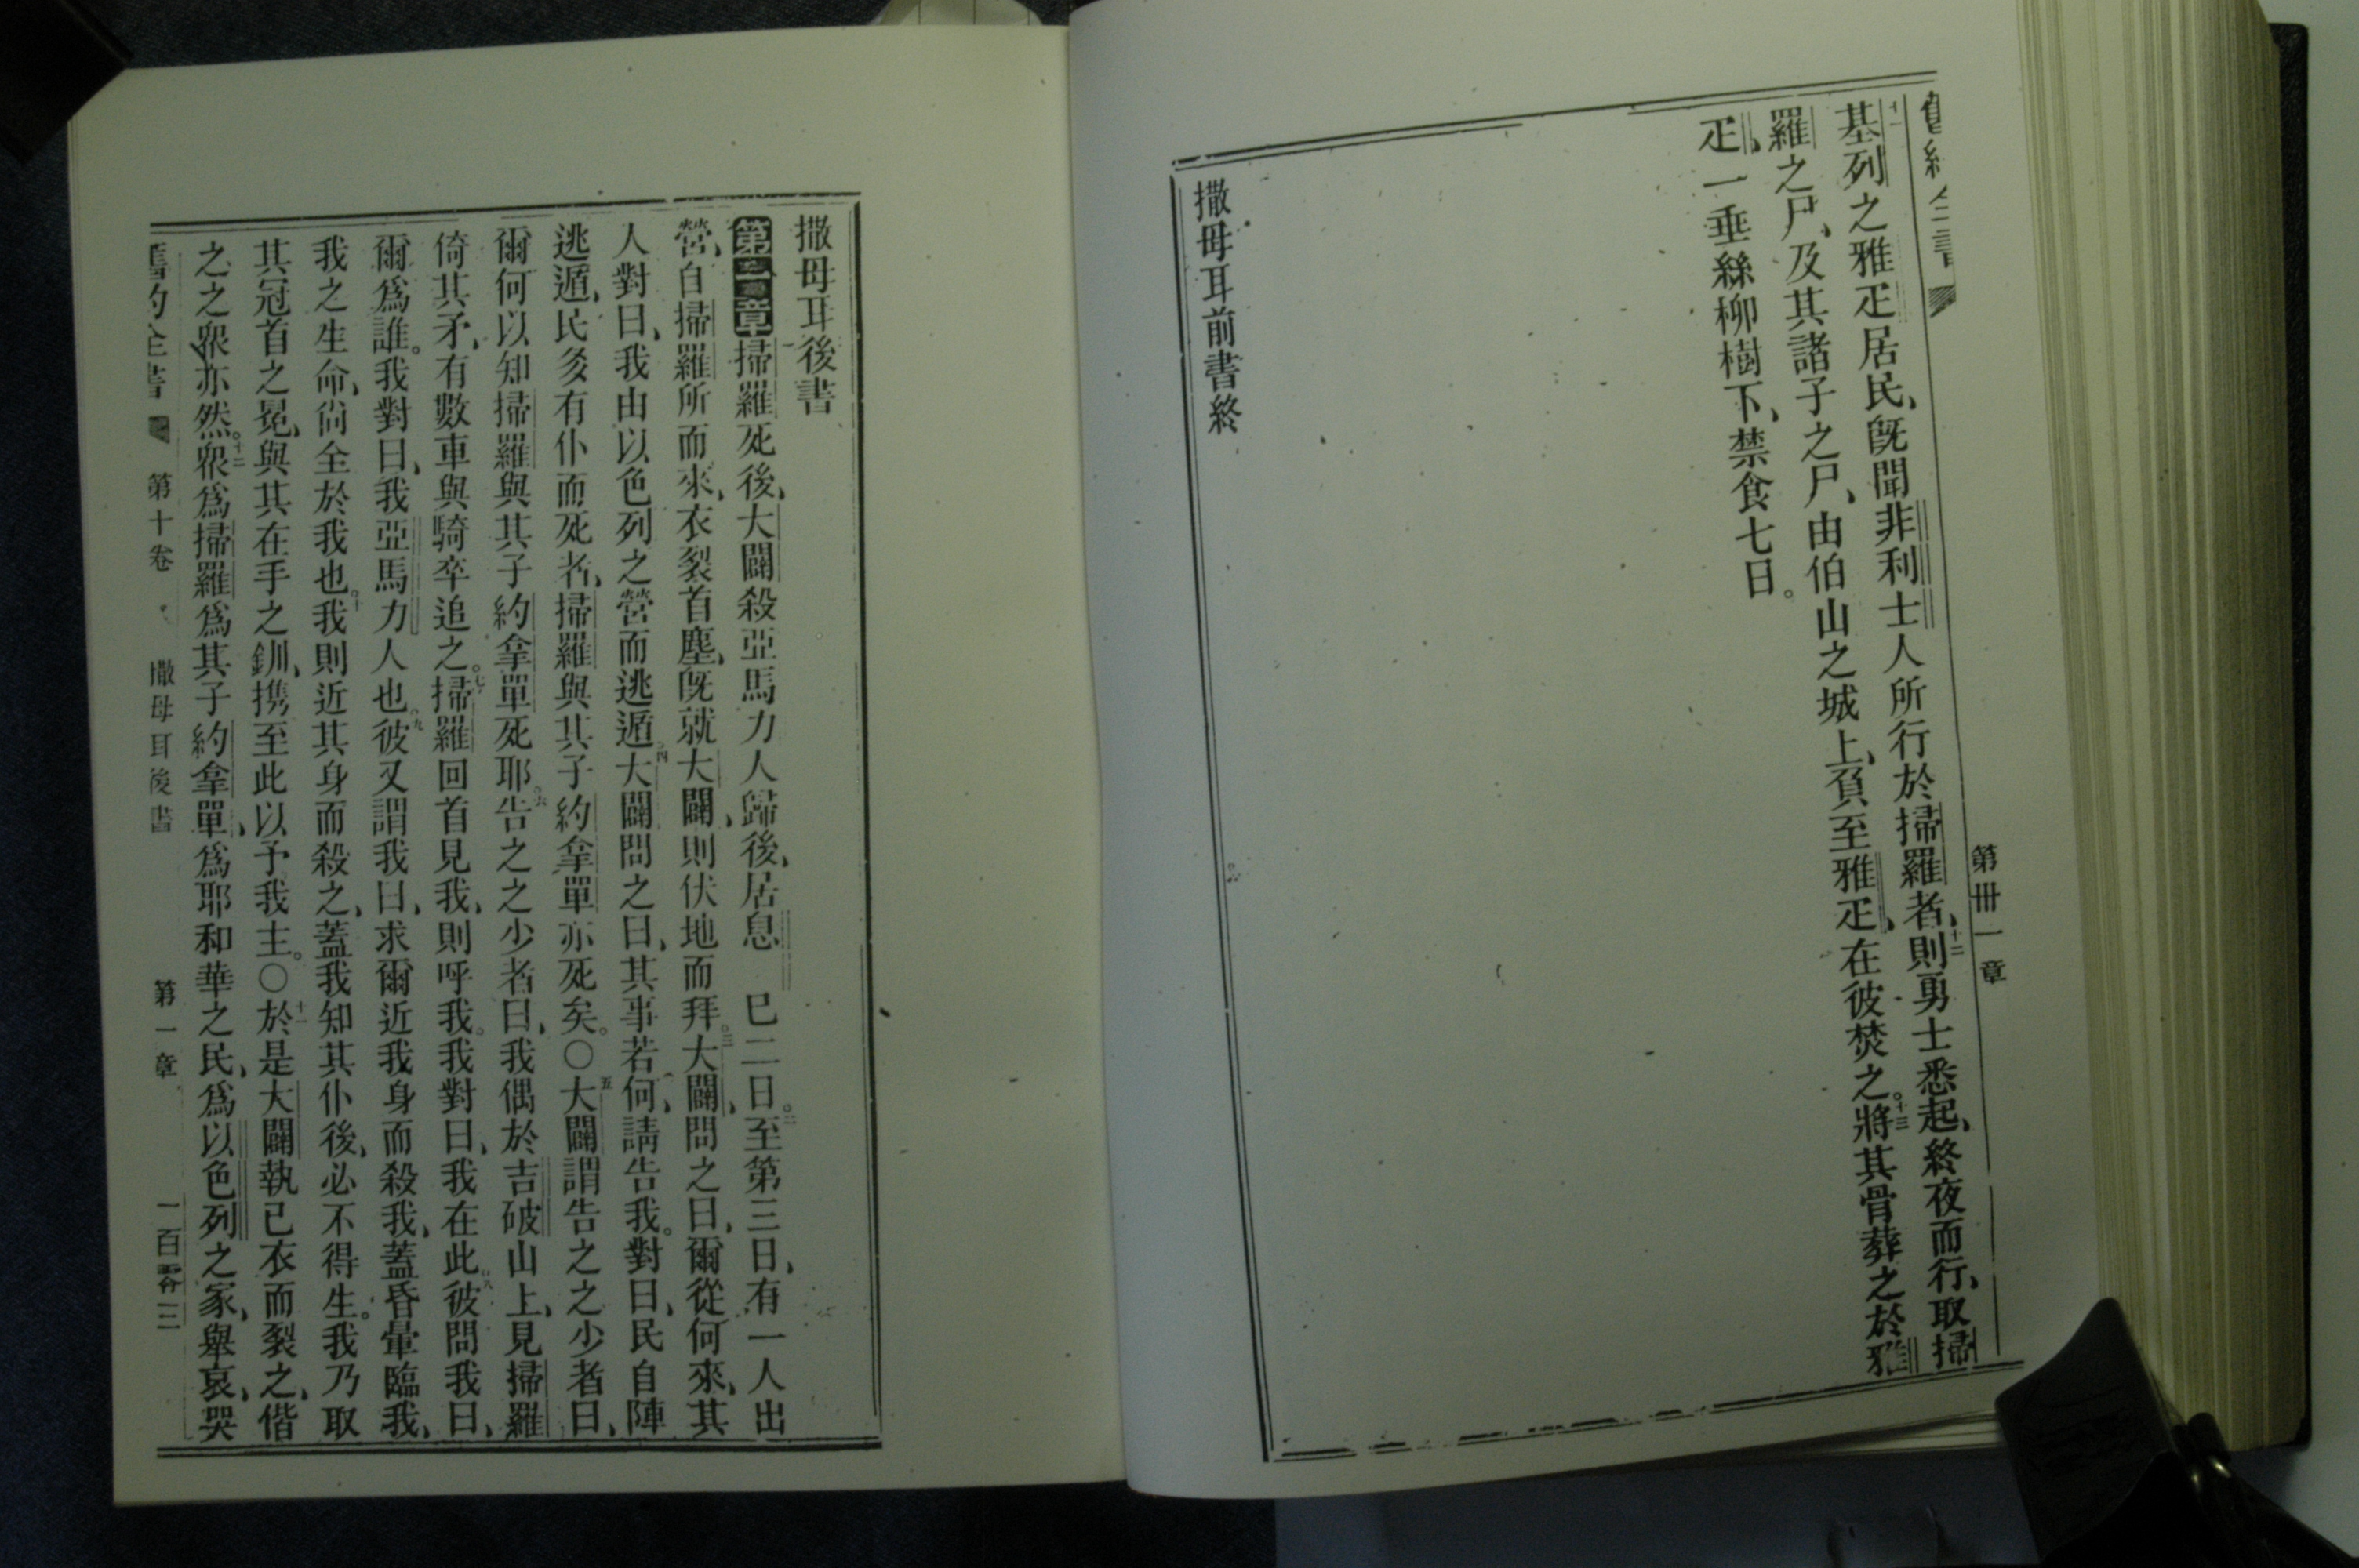 舊約全書
第卌一章
十一基列之雅疋居民、旣聞非利士人所行於掃羅者、十二則勇士悉起、終夜而行、取掃
羅之尸、及其諸子之尸、由伯山之城上、負至雅疋、在彼焚之。十三將其骨葬之於雅
疋、一垂絲柳樹下、禁食七日。
撒母耳前書終
撒母耳後書
第一章掃羅死後、大闢殺亞馬力人歸後、居息 巳二日。二至第三日、有一人出
營、自掃羅所而來、衣裂首塵、旣就大闢、則伏地而拜。三大闢、問之曰、爾從何來、其
人對曰、我由以色列之營而逃遁。四大闢問之曰、其事若何、請告我。對曰、民自陣
逃遁、民多有仆而死者、掃羅與其子約拿單亦死矣。〇五大闢謂告之之少者曰、
爾何以知掃羅與其子約拿單死耶。六告之之少者曰、我偶於吉破山上、見掃羅
倚其矛、有數車與騎卒追之。七掃羅回首見我、則呼我。我對曰、我在此。八彼問我曰、
爾爲誰。我對曰、我亞馬力人也。九彼又謂我曰、求爾近我身而殺我、蓋昏暈臨我、
我之生命、尙全於我也。十我則近其身而殺之、蓋我知其仆後、必不得生。我乃取
其冠首之冕、與其在手之釧、携至此以予我主。〇十一於是大闢執己衣而裂之、偕
之之衆亦然。十二衆爲掃羅爲其子約拿單、爲耶和華之民、爲以色列之家、舉哀、哭
舊約全書 第十卷 撒母耳後書 第一章